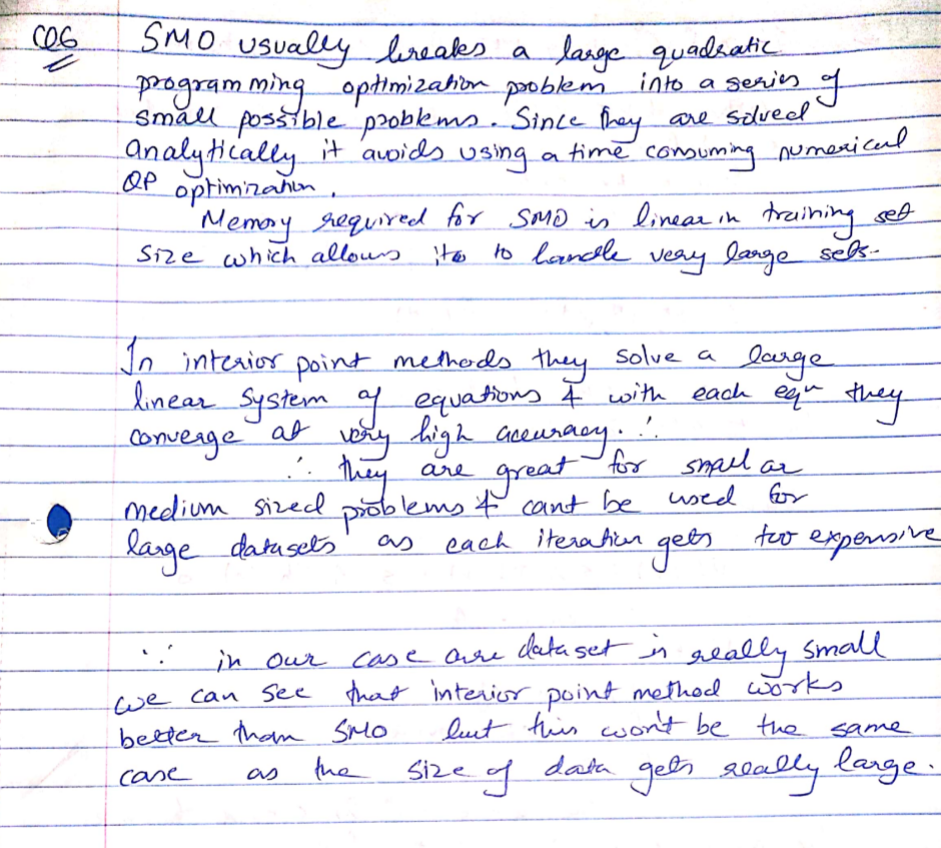 CO6 SMO usually breaks a large quadratic
programming optimization problem into a series of
small possible problems. Since they are solved
analytically it avoids using a time consuming numerical
QP optimization.
Memory required for SMO is linear in training set
size which allows it to handle very large sets.
In interior point methods they solve a large
linear system of equations & with each eqn they
converge at very high accuracy. ∴
∴ they are great for small or
medium sized problems & cant be used for
large datasets as each iteration gets too expensive
∵ in our case our dataset is really small
we can see that interior point method works
better than SMO but this won't be the same
case as the size of data gets really large.